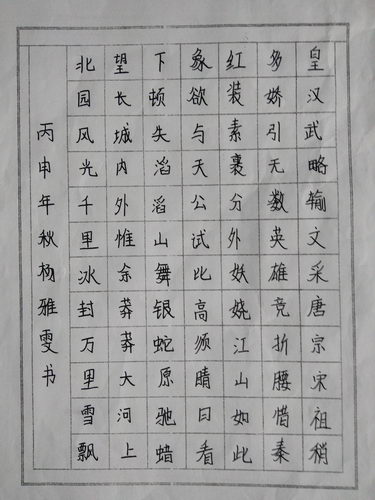 北园风光千里冰封万里雪飘
望长城内外惟余莽莽大河上
下顿失滔滔山舞银蛇原驰蜡
象欲与天公试比高须晴日看
红装素裹分外妖娆江山如此
多娇引无数英雄竞折腰惜秦
皇汉武略输文采唐宗宋祖稍
丙申年秋杨雅雯书